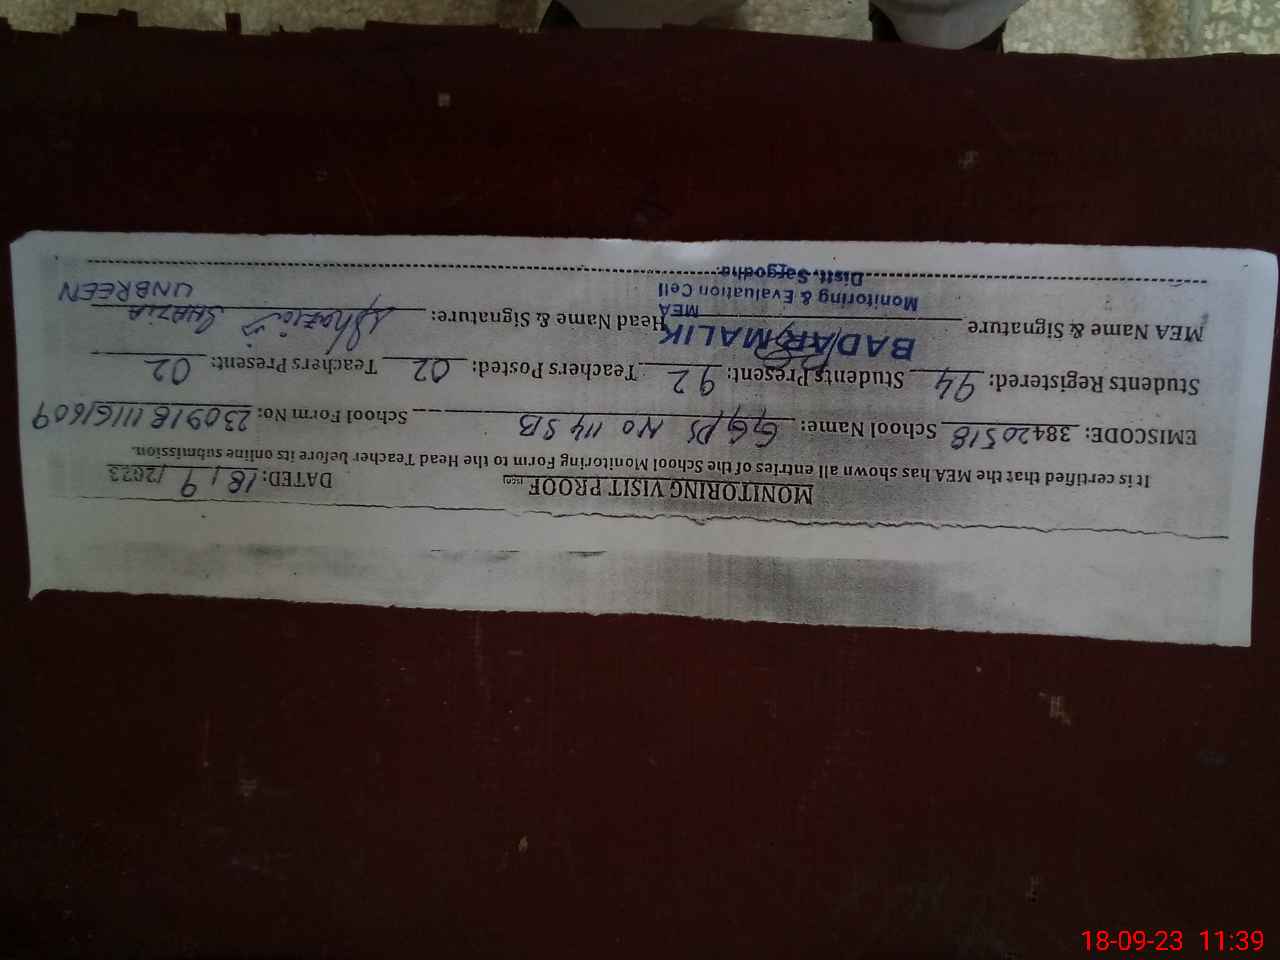 MONITORING VISIT PROOF
DATED: 18 / 9 /2023
It is certified that the MEA has shown all entries of the School Monitoring Form to the Head Teacher before its online submission.
EMISCODE: 38420518 School Name: GGPS NO 114 SB School Form No: 230918111161609
Students Registered: 94 Students Present: 92 Teachers Posted: 02 Teachers Present: 02
BADAR MALIK
MEA Name & Signature Head Name & Signature: Shazia SHAZIA UNBREEN
MEA
Monitoring & Evaluation Cell
Distt. Sargodha
18-09-23 11:39